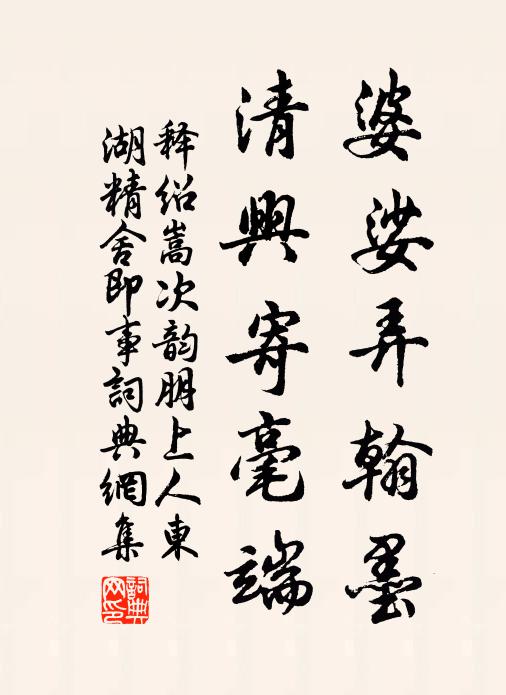 婆娑弄翰墨
清興寄毫端
释绍嵩次韵朋上人東
湖精舍即事詞典網集